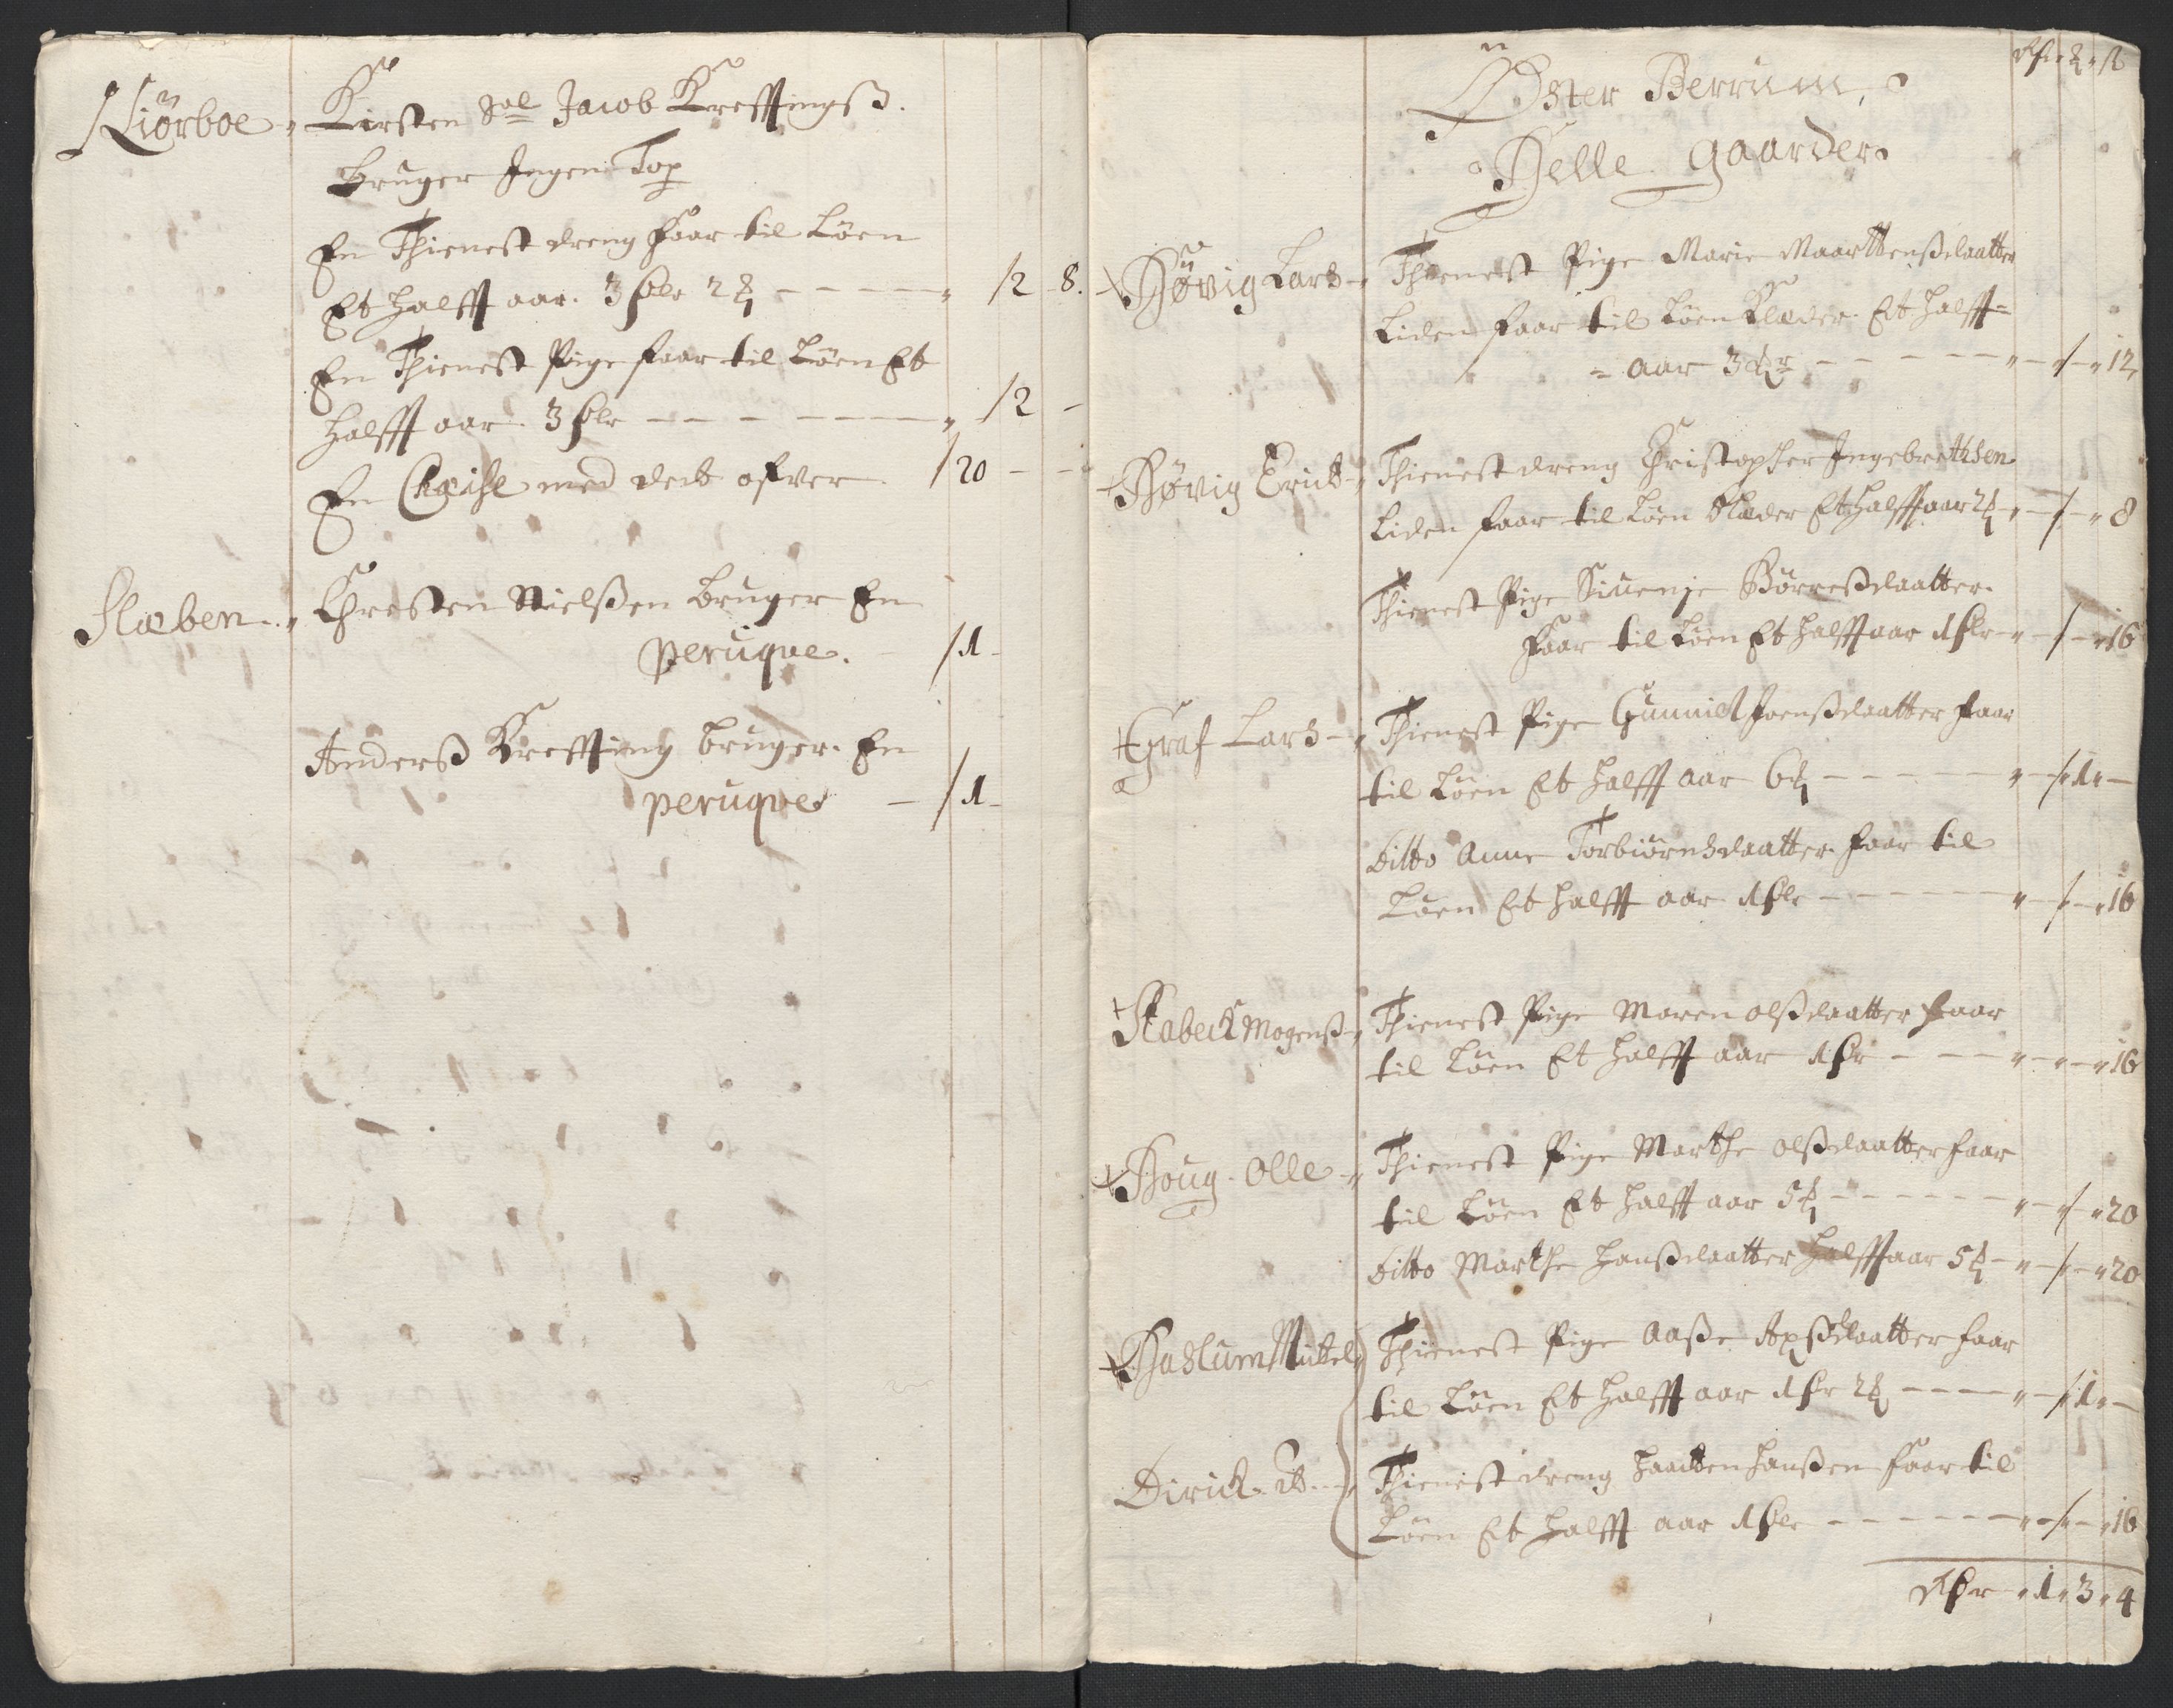 Kiørboe „ Kirsten Sal Jacob Krefftingß.
bruger Ingen Top
En Thienest dreng faar til Løen
Et halfft aar. 3 Rdlr 2 ℥ — — — — „ /2 8.
En Thienest Pige faar til Løen Et
halfft aar. 3 Rdlr — — — — — „ /2 —
En Chaise med deck ofver /20 — —
Slæben „ Christen Nielßen bruger En
peruqve. — /1 —
Anderß Kreffting bruger En
peruqve — /1 —
Øster Berrum,
Helle gaarder
Høvig Lars — Thienest Pige Marie Maarttensdaatter
Liden faar til Løen Klæder Et halfft=
= aar 3 ort — — — — „ — / — „ 12
Høvig Erick — Thienest dreng Christopher Ingebrethsen
Liden faar til Løen Klæder Et halfft aar 2 ℥ „ — / — „ 8
Thienest Pige Siuenje Børreßdaatter
faar til Løen Et halfft aar 1 Rdlr — „ — / — „ 16
Graf Lars — Thienest Pige Gunnild Joensdaatter faar
til Løen Et halfft aar 6 ℥ — — — — „ — / „ 1 „ —
Ditto Anne Torbiørnsdaatter faar til
Løen Et halfft aar 1 Rdlr — — — — „ — / — „ 16
Stabeck Mogenß — Thienest Pige Maren olßdaatter faar
til Løen Et halfft aar 1 Rdr — — — „ — „ — „ 16
Houg Olle — Thienest Pige Marthe olßdaatter faar
til Løen Et halfft aar 5 ℥ — — — — „ — / — „ 20
Ditto Marthe Hanßdaatter halfft aar 5 ℥ — „ — / — „ 20
Haslum Mickel Thienest Pige Aaße daatter faar
til Løen Et halfft aar 1 Rdr 2 ℥ — — — „ — / 1 „ —
Dirick ib. — Thienest dreng Hanßen faar til
Løen Et halfft aar 1 Rdlr — — — — „ — / — „ 16
Rdr „ 1 „ 3 „ 4